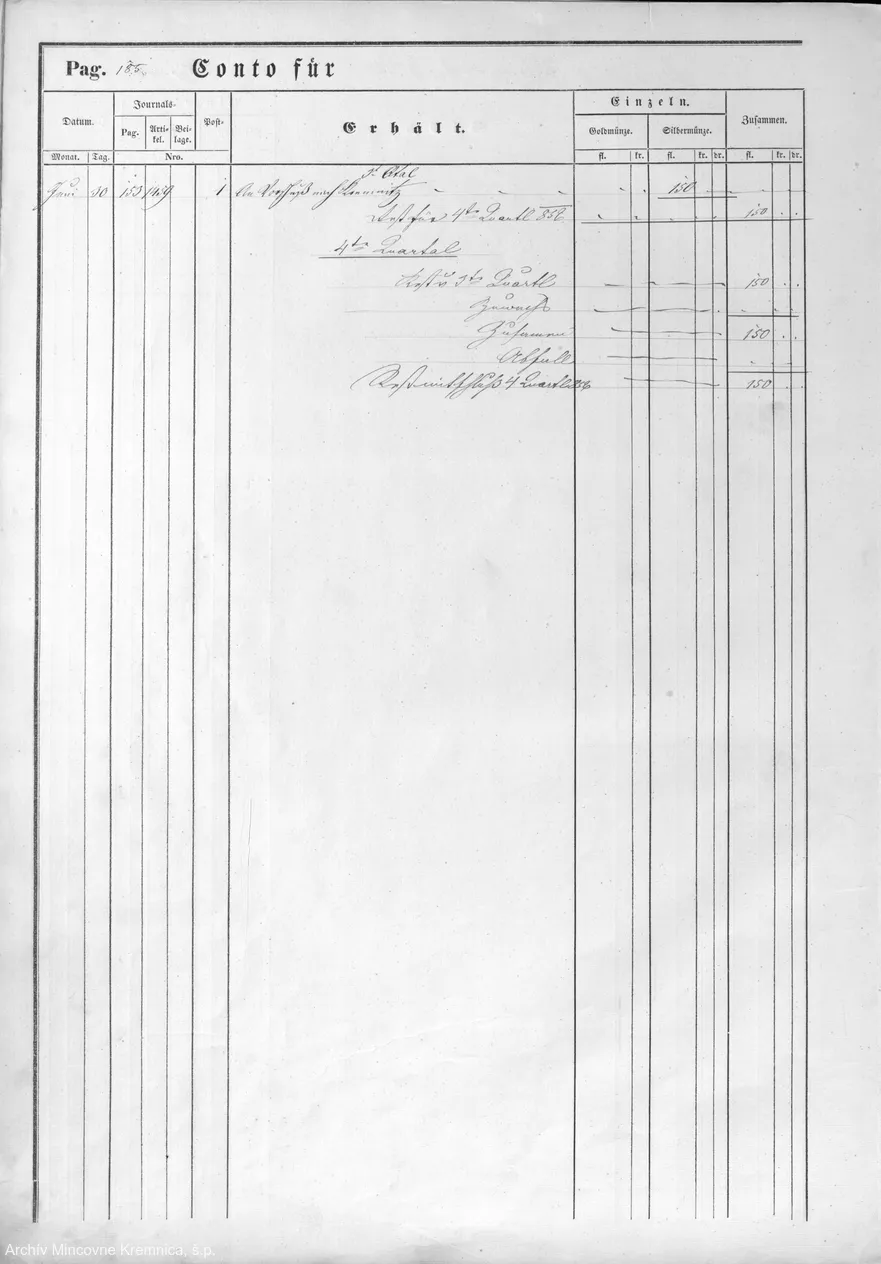 Pag. 185. Conto für
Datum. Journals- Post- Erhält. Einzeln. Zusammen.
Pag. Arti-kel. Bei-lage. Goldmünze. Silbermünze.
Monat. Tag. Nro. fl. kr. fl. kr. dr. fl. kr. dr.
3t Qtal
Juni 30 153 1459 1 An Vorschuß nach Kremnitz - - - - . 150 - - - -
Rest für 4te Quartl 856 - - - - 150 . .
4te Quartal
Rest v 3te Quartl - - - 150 . .
Zuwachs - - - . . . .
Zusammen - - - 150 . .
Abfall - - - . . .
Rest mit Schluß 4 Quartl 856 - - - 150 . .
Archív Mincovne Kremnica, š.p.